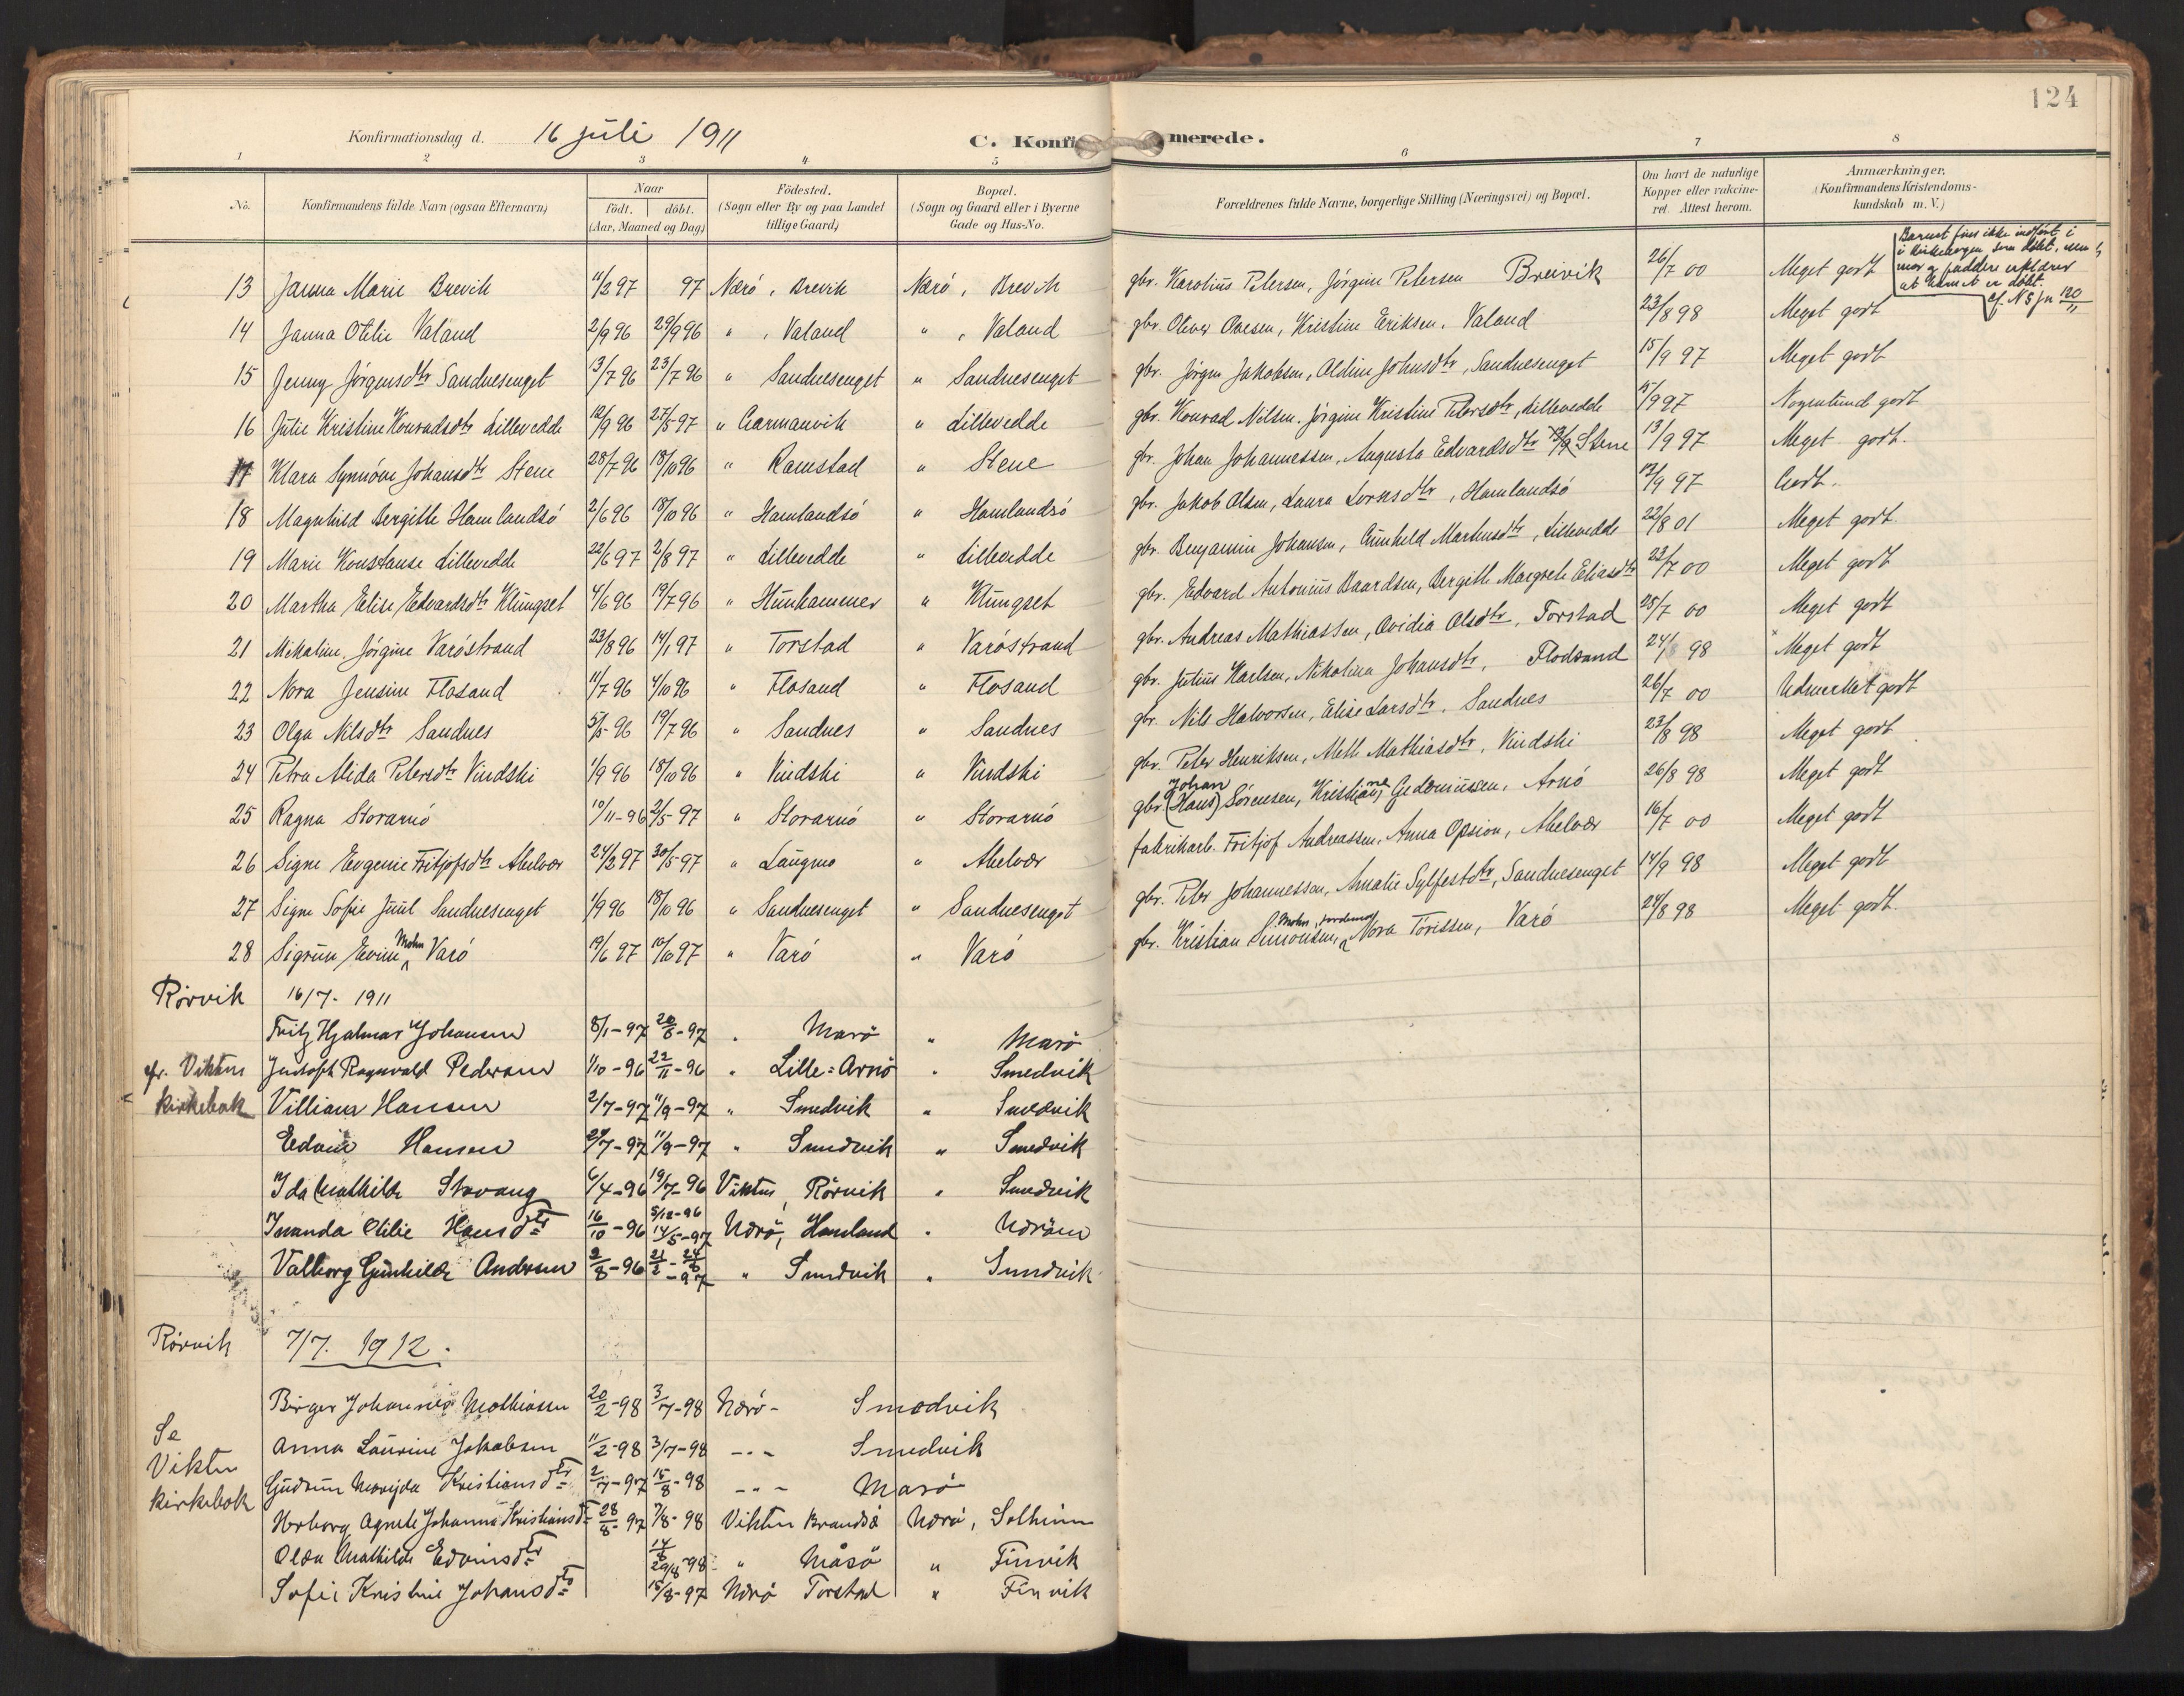 124
Konfirmationsdag d. 16 juli 1911 C. Konfirmerede.
1 2 3 4 5 6 7 8
No. Konfirmandens fulde Navn (ogsaa Efternavn) Naar født. døbt. (Aar, Maaned og Dag) Fødested. (Sogn eller By og paa Landet tillige Gaard) Bopæl. (Sogn og Gaard eller i Byerne Gade og Hus-No. Forældrenes fulde Navne, borgerlige Stilling (Næringsvei) og Bopæl. Om havt de naturlige Kopper eller vakcineret. Attest herom. Anmærkninger. (Konfirmandens Kristendomskundskab m. V.)
Barnet fins ikke indført i
i kirkebogen som døbt, men
mor og faddere erklærer
at barnet er døbt.
cf. N 5 jn 120/11
13 Janna Marie Brevik 11/2 97 97 Nærö, Brevik Nærö, Brevik gbr. Karolius Petersen, Jörgine Petersen Breivik 26/7 00 Meget godt
14 Janna Otelie Valand 2/9 96 29/9 96 " , Valand " , Valand gbr. Oliver Ovesen, Kristine Eriksen, Valand 23/8 98 Meget godt
15 Jenny Jörgensdtr Sandnesenget 13/7 96 23/7 96 " Sandnesenget " Sandnesenget gbr. Jörgen Jakobsen, Aldine Johnsdtr, Sandnesenget 15/9 97 Meget godt
16 Julie Kristine Konradsdtr Lillevedde 12/9 96 27/5 97 " Garmanvik " Lillevedde gbr. Konrad Nilsen, Jörgine Kristine Petersdtr, Lillevedde 15/9 97 Nogenlund godt
17 Klara Synnöve Johansdtr Stene 28/7 96 18/10 96 " Ramstad " Stene gbr. Johan Johannessen, Augusta Edvardsdtr Stene 13/9 97 Meget godt.
18 Magnhild Bergitte Hamlandsö 2/6 96 18/10 96 " Hamlandsö " Hamlandsö gbr. Jakob Olsen, Laura Lornsdtr, Hamlandsö 12/9 97 Godt.
19 Marie Konstanse Lillevedde 22/6 97 2/8 97 " Lillevedde " Lillevedde gbr. Benjamin Johansen, Gunhild Martensdtr, Lillevedde 22/8 01 Meget godt.
20 Martha Elise Edvardsdtr Klungset 4/6 96 19/7 96 " Hunhammer " Klungset gbr. Edvard Antonius Baardsen, Bergitte Margrete Eliasdtr 23/7 00 Meget godt
21 Mekaline Jörgine Varöstrand 23/8 96 14/1 97 " Torstad " Varöstrand gbr. Andreas Mathiassen, Ovidia Olsdtr, Torstad 25/7 00 Meget godt
22 Nora Jensine Flosand 11/7 96 4/10 96 " Flosand " Flosand gbr. Julius Karlsen, Nikolina Johansdtr, Flodsand 24/8 98 Meget godt
23 Olga Nilsdtr Sandnes 5/5 - 96 19/7 96 " Sandnes " Sandnes gbr. Nils Halvorsen, Elise Larsdtr. Sandnes 26/7 00 Udmerket godt
24 Petra Alida Petersdtr Vindski 1/9 96 18/10 96 " Vindski " Vindski gbr. Peter Henriksen, Meth Mathiasdtr, Vindski 23/8 98 Meget godt
25 Ragna Storarnö 10/11 - 96 2/5 - 97 " Storarnö " Storarnö gbr. (Hans) Johan Sörensen, Kristiane Gederiussen, Arnö 26/8 98 Meget godt
26 Signe Eugenie Fritjofsdtr Abelvær 24/2 97 30/5 97 " Langmo " Abelvær fabrikarb. Fritjof Andreassen, Anna Opsion, Abelvær 16/7 00 Meget godt
27 Signe Sofie Juul Sandnesenget 1/9 96 18/10 96 " Sandnesenget " Sandnesenget gbr. Peter Johannessen, Amalie Sylfestdtr, Sandnesenget 14/9 98 Meget godt
28 Sigrun Evine Mohn Varö 19/6 97 10/10 97 " Varö " Varö gbr. Kristian Simonsen, Mohn, jordemor Nora Torissen, Varö 24/8 98 Meget godt.
Rörvik 16/7 - 1911
Fritz Hjalmar Johansen 8/1 - 97 20/6 - 97 " Marö " Marö
cfr. Viktens Justoft Ragnvald Pedersen 1/10 - 96 22/11 - 96 " Lille=Arnö " Smedvik
kirkebok Villiam Hansen 2/7 - 97 11/9 - 97 " Smedvik " Smedvik
Edvin Hansen 24/7 - 97 11/9 - 97 " Smedvik " Smedvik
Ida Mathilde Stavang 6/4 - 96 19/7 - 96 Vikten, Rörvik " Smedvik
Inanda Otilie Hansdtr 16/10 - 96 5/12 - 96 14/5 - 97 Nærö, Hamland " Nærøen
Valborg Gunhilde Andersen 2/8 - 96 21/2 - 24/6 - 97 " Smedvik " Smedvik
Rörvik 7/7. 1912.
Birger Johannes Mathiassen 20/2 - 98 3/7 - 98 Nærö - Smedvik
Se Anna Laurine Jakobsen 11/2 - 98 3/7 - 98 - " - Smedvik
Vikten Gudrun Kristiansdtr 2/7 - 97 15/8 - 98 - " - Marö
kirkebok Herborg Agnete Johanna Kristiansdtr 28/8 - 97 7/8 - 98 Vikten Nærö, Solheim
Olea Mathilde Edvinsdtr 14/8 29/8 - 98 " Måsö " Finvik
Sofie Kristine Johansdtr 15/8 - 97 Nærö Torstad " Finvik